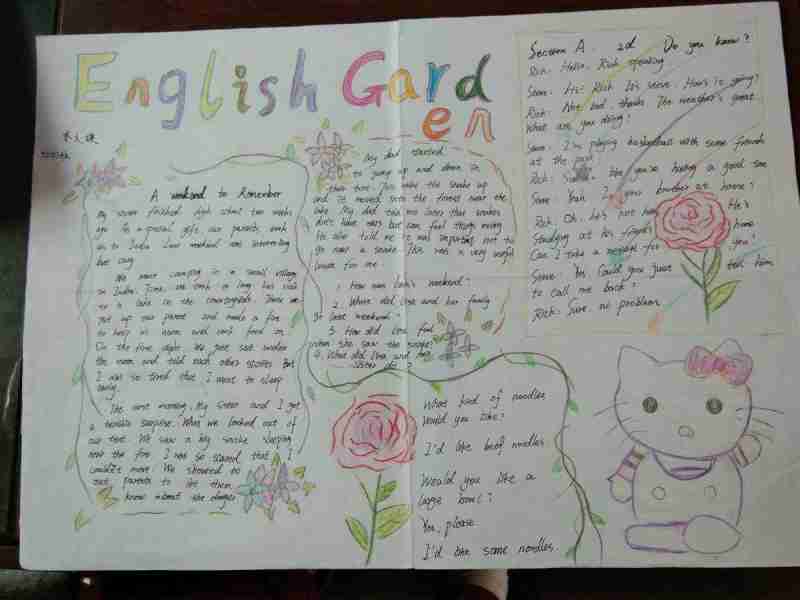 English Gard
en
A weekend to Remember
My sister finished high school two weeks
ago. As a special gift, our parents took
us to India. Last weekend was interesting
but scary.
We went camping in a small village
in India. First, we took a long bus ride
to a lake in the countryside. There we
put up our and made a fire
to keep us warm and cook food on.
On the first night, We just sat under
the moon and told each other stories. But
I was so tired that I went to sleep
early.
The next morning, My sister and I got
a terrible surprise. When we looked out of
our tent. We saw a big snake sleeping
near the fire. I was so scared that I
couldn't move. We shouted to
our parents to let them
know about the danger
My dad started
to jump up and down in
their tent. This woke the snake up
and it moved into the forest near the
lake. My dad told me later that snakes
don't have ears but can feel things moving.
He also told me it was important not to
go near a snake. This was a very useful
lesson for me.
1. How was Lisa's weekend?
2. Where did Lisa and her family
go last weekend?
3. How did Lisa feel
when she saw the snake?
4. What did Lisa and her
sister do?
Section A. 2d Do you know?
Rick: Hello. Rick speaking.
Steve: Hi! Rick. It's Steve. How's it going?
Rick: Not bad, thanks. The weather's great.
What are you doing?
Steve: I'm playing basketball with some friends
at the park.
Rick: like you're having a good time
Steve: Yeah. Is your brother at home?
Rick: Oh, he's not home, He's
studying at his friend's home
Can I take a message for you?
Steve: Yes. Could you just tell him
to call me back?
Rick: Sure, no problem
What kind of noodles
would you like?
I'd like beef noodles
Would you like a
large bowl?
Yes, please.
I'd like some noodles.